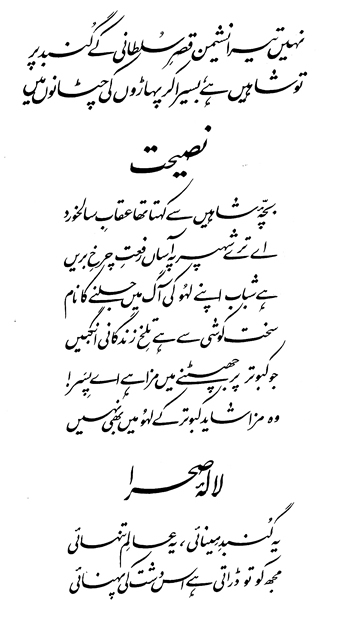 نہیں تیرا نشیمن قصرِ سلطانی کے گنبد پر
تو شاہیں ہے بسیرا کر پہاڑوں کی چٹانوں میں
نصیحت
بچۂ شاہیں سے کہتا تھا عقابِ سالخورد
اے ترے شہپر پہ آساں رفعتِ چرخِ بریں
ہے شباب اپنے لہُو کی آگ میں جلنے کا نام
سخت کوشی سے ہے تلخِ زندگانی انگبیں
جو کبوتر پر جھپٹنے میں مزا ہے اے پِسر!
وہ مزا شاید کبوتر کے لہُو میں بھی نہیں
لالۂ صحرا
یہ گنبدِ مینائی، یہ عالمِ تنہائی
مجھ کو تو ڈراتی ہے اس دشت کی پہنائی